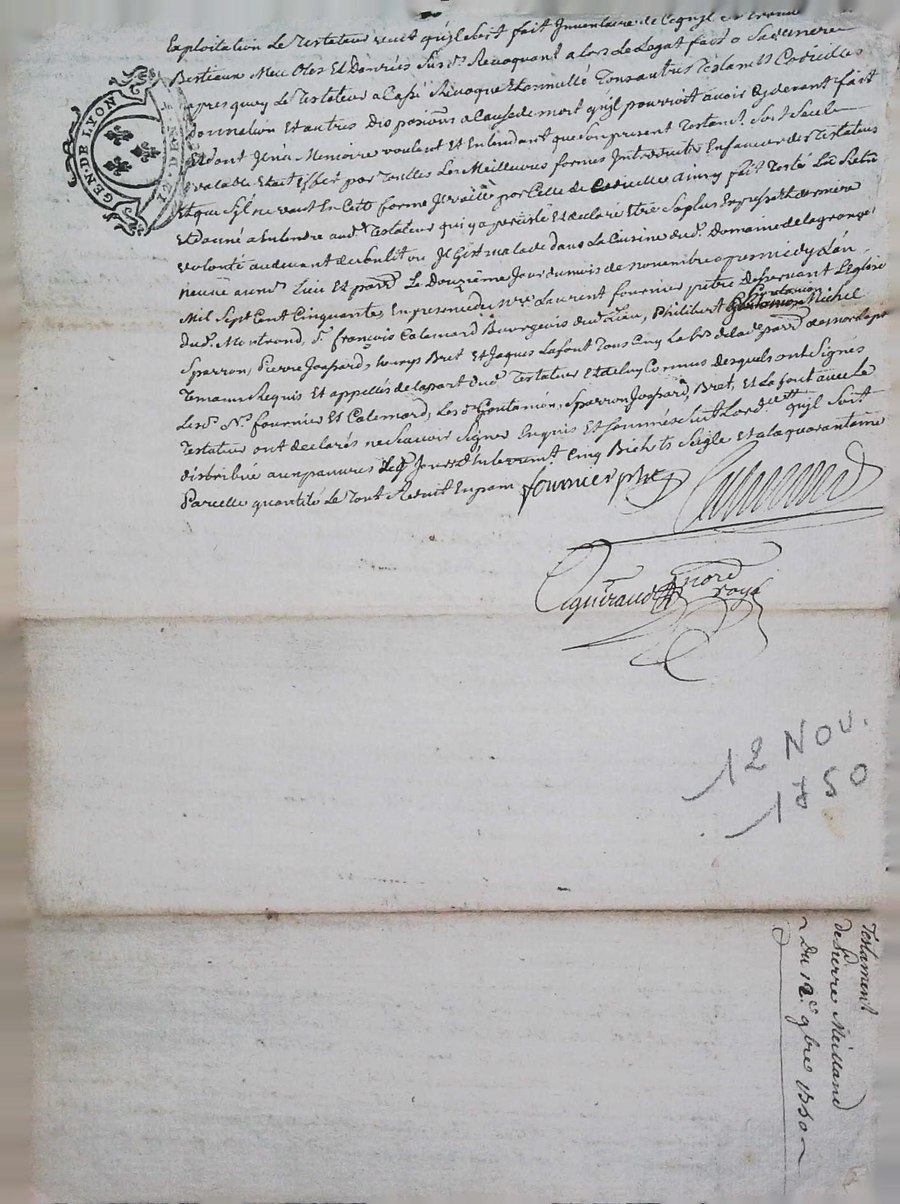 Exploitation Le Testateur veut qu'il soit fait Inventaire de
Bestiaux Meubles Et Danrées Sus Revoquant a lors Le Legat fait a Sa
apres quoy Le Testateur a Cassé Revoqué Et annullé Tous autres Testamts Codicilles
donnation Et autres dispositions a Cause de mort qu'il pourroit avoir Cy devant fait
n'a Memoire voulant Et Entendant que Son present Testamt. Soit Seule
valable Et Effet par Toutes Les Meilleures formes Introduite En faveur des Testateurs
Et que S'il ne vaut En Cette forme Il vaille par Celle de Codicille ainsy fait Testé Lu Relu
Et donné a Entendre aud. Testateur qui y a persisté Et declaré Etre Sa plus Expresse derniere
volonté audevant de Son lit ou Il Gist malade dans La Cuisine dud. Domaine de la grange
neuve aud. Lieu Et parr. Le Douzième Jour du mois de novembre apres midy L'an
Mil Sept Cent Cinquante, En presence de Mre Laurent fournier pretre desservant L'Eglise
dud. Montrond, Sr. françois Calemard Bourgeois dud. Lieu, Philibert Goutamon Michel
Sparron, Pierre Joassard, Bret Et Jaques Lafont Tous Cinq Lab.rs de lad. parr. de
Temoins Requis Et appellés de la part dud. Testateur Et de luy Connus desquels ont Signés
Lesd. Srs. fournier Et Calemard, Lesd. Goutamon, Sparron Joassard, Bret, Et Lafont avec Le
Testateur ont declarés ne Scavoir Signer Enquis Et Sommés qu'il Soit
distribué aux pauvres Le Jour d'Enterremt. Cinq Bichets Seigle Et a la quarantaine
Pareille quantité Le Tout Reduit En pain fournier ptre Calemard
royal
GEN. DE LYON
12. DEN
12 NOV.
1750
Testament
de Pierre Meilland
Du 12e. 9bre 1750